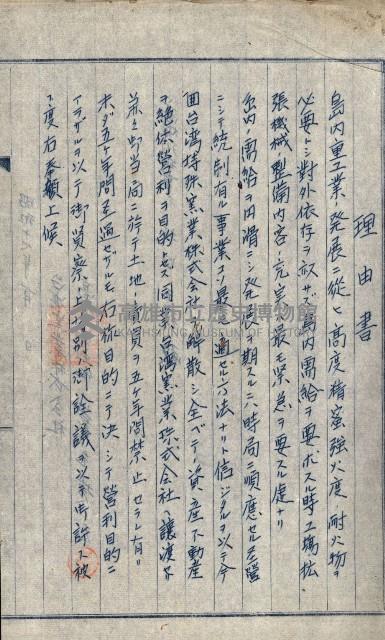 理由書
島內重工業ノ発展ニ從ヒ高度精蜜強火度耐火物ヲ
必要トシ對外依存ヲ叙サズ島內需給ヲ要求スル時工場拡
張機械整備內容ノ充実ハ最モ緊急ヲ要スル處ナリ
島內ノ需給ヲ円滑ニシ発展ヲ期スルニハ時局ニ順應セル
ニシテ統制有ル事業コソ最 適 ナリト信ジタルヲ以テ今
回台湾特殊窯業株式会社ヲ解散シ全ベテノ資産不動産
ヲ絶体營利ヲ目的トセズ同系台湾窯業株式会社ヘ讓渡
当局ニ於テ土地 買ヲ五ケ年間禁止セラレ有リ
未ダ五ケ年間 過ゼザルモ右 目的ニテ決シテ營利目的ニ
アラザルヲ以テ御賢察ノ上特別ノ御詮議ヲ以テ御許下被
下度右奉願上候
高雄市立歷史博物館
KAOHSIUNG MUSEUM OF HISTORY